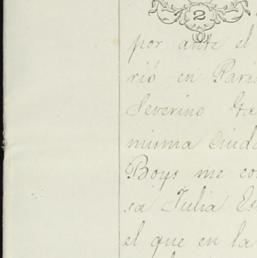 2
por ante el
rió en Pará
Severino Ga
misma ciuda
Boys me co
sa Julia Es
el que en la